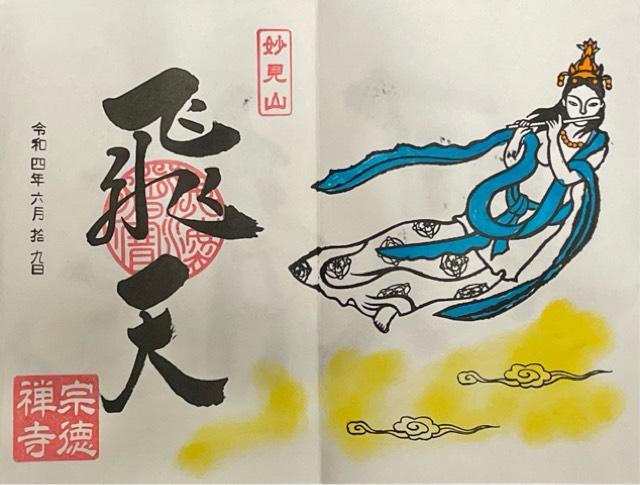 妙見山
飛天
令和四年六月拾九日
宗徳
禅寺